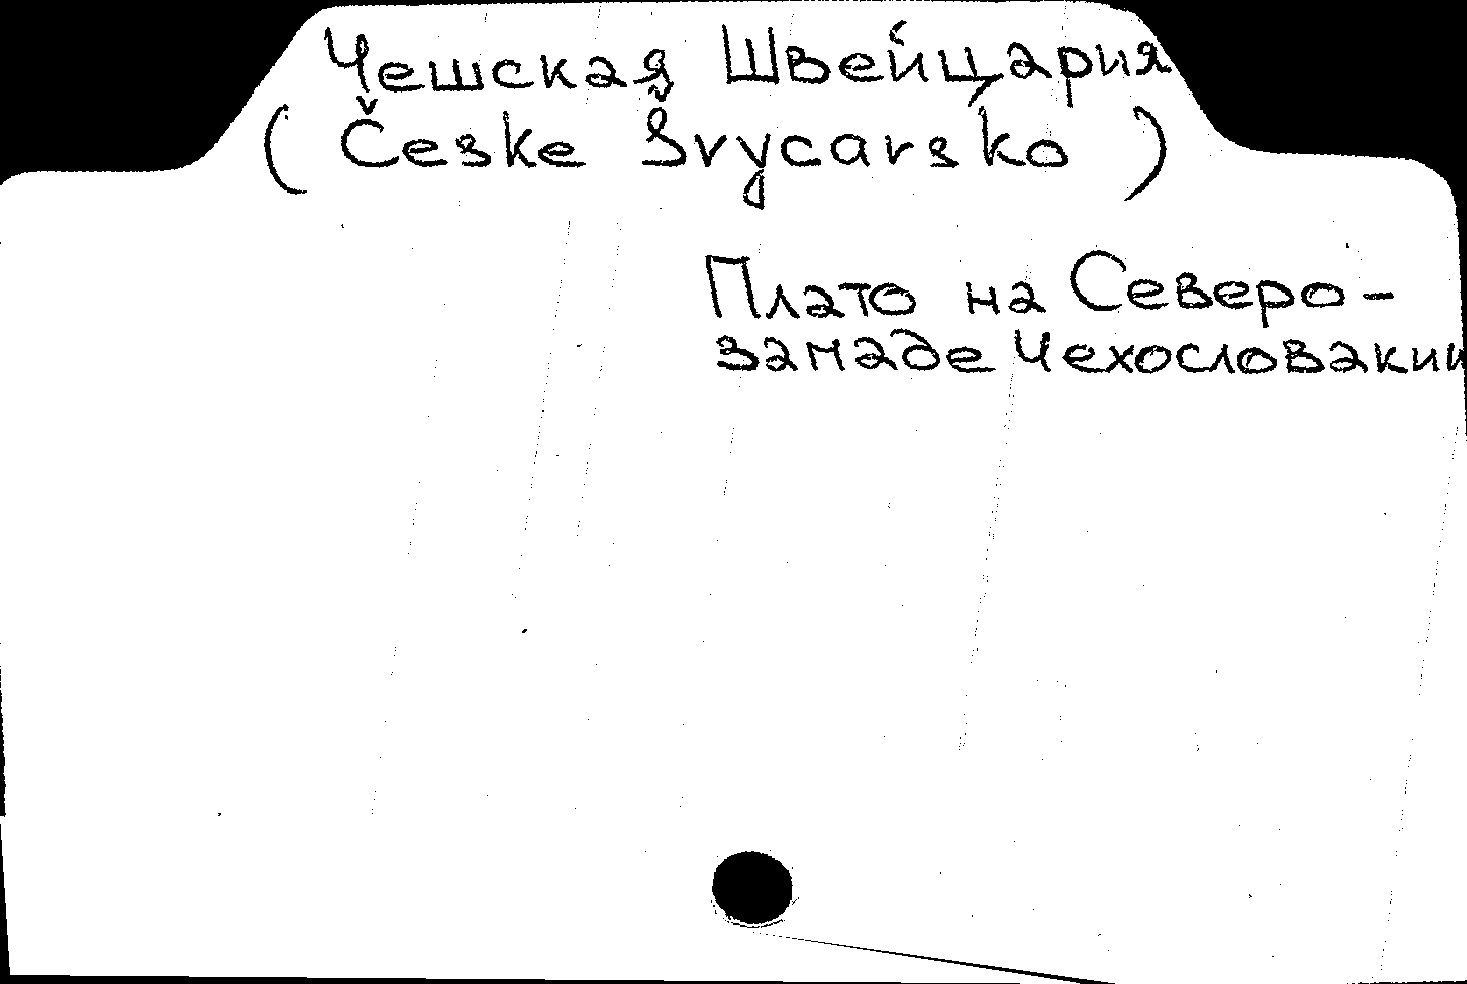 Чешская Швейцария
( Česke Švycarsko )
Плато на Северо-
западе Чехословакии